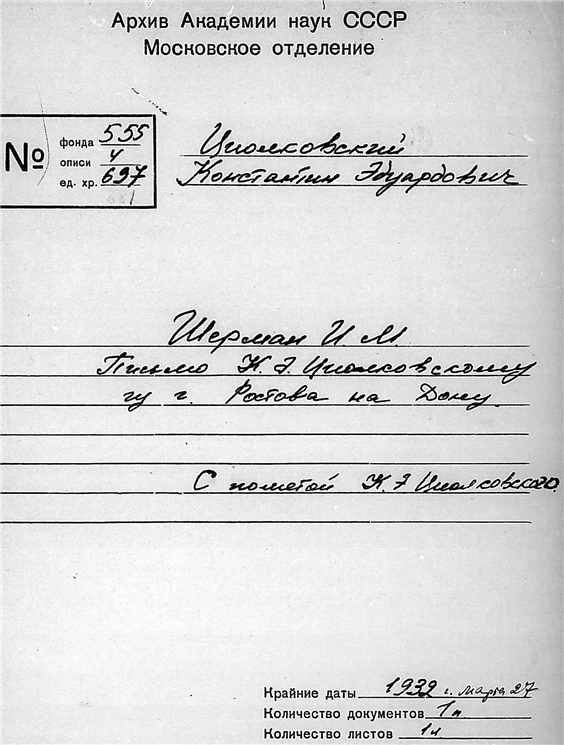 Архив Академии наук СССР
Московское отделение
№
фонда 555
описи 4
ед. хр. 697
Циолковский
Константин Эдуардович
Шерман И М
Письмо К. Э. Циолковскому
гу г. Ростова на Дону
С пометой К. Э Циолковского.
Крайние даты 1932 г. марта 27
Количество документов 1
Количество листов 1л